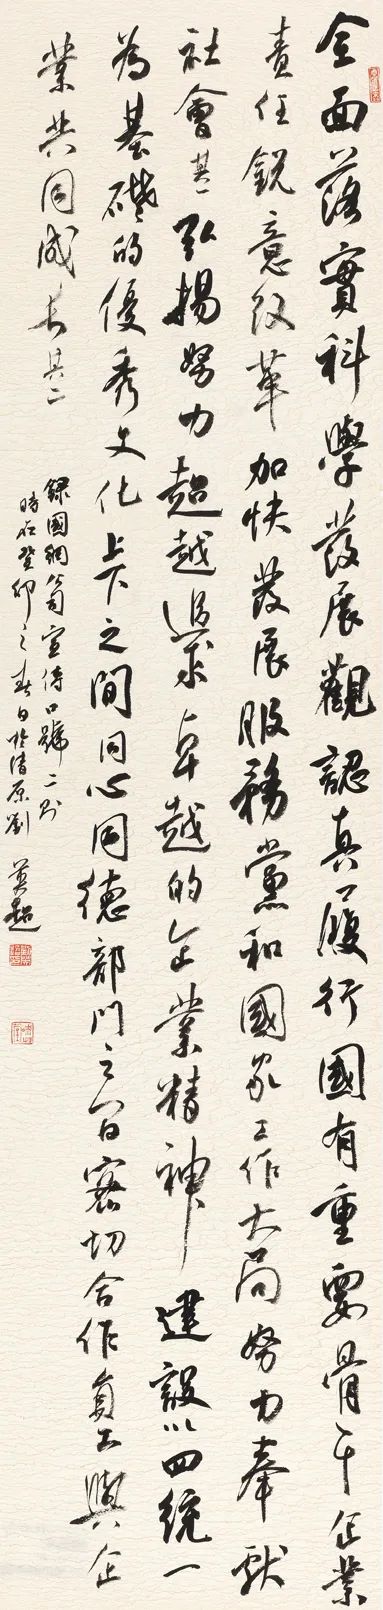 全面落實科學發展觀認真履行國有重要骨干企業
責任銳意改革加快發展服務黨和國家工作大局努力奉獻
社會其一弘揚努力超越追求卓越的企業精神建設以四統一
為基礎的優秀文化上下之間同心同德部門之間密切合作員工與企
業共同成長其二
錄國網公司宣傳口號二則
時在癸卯之春日於清原劉
英超